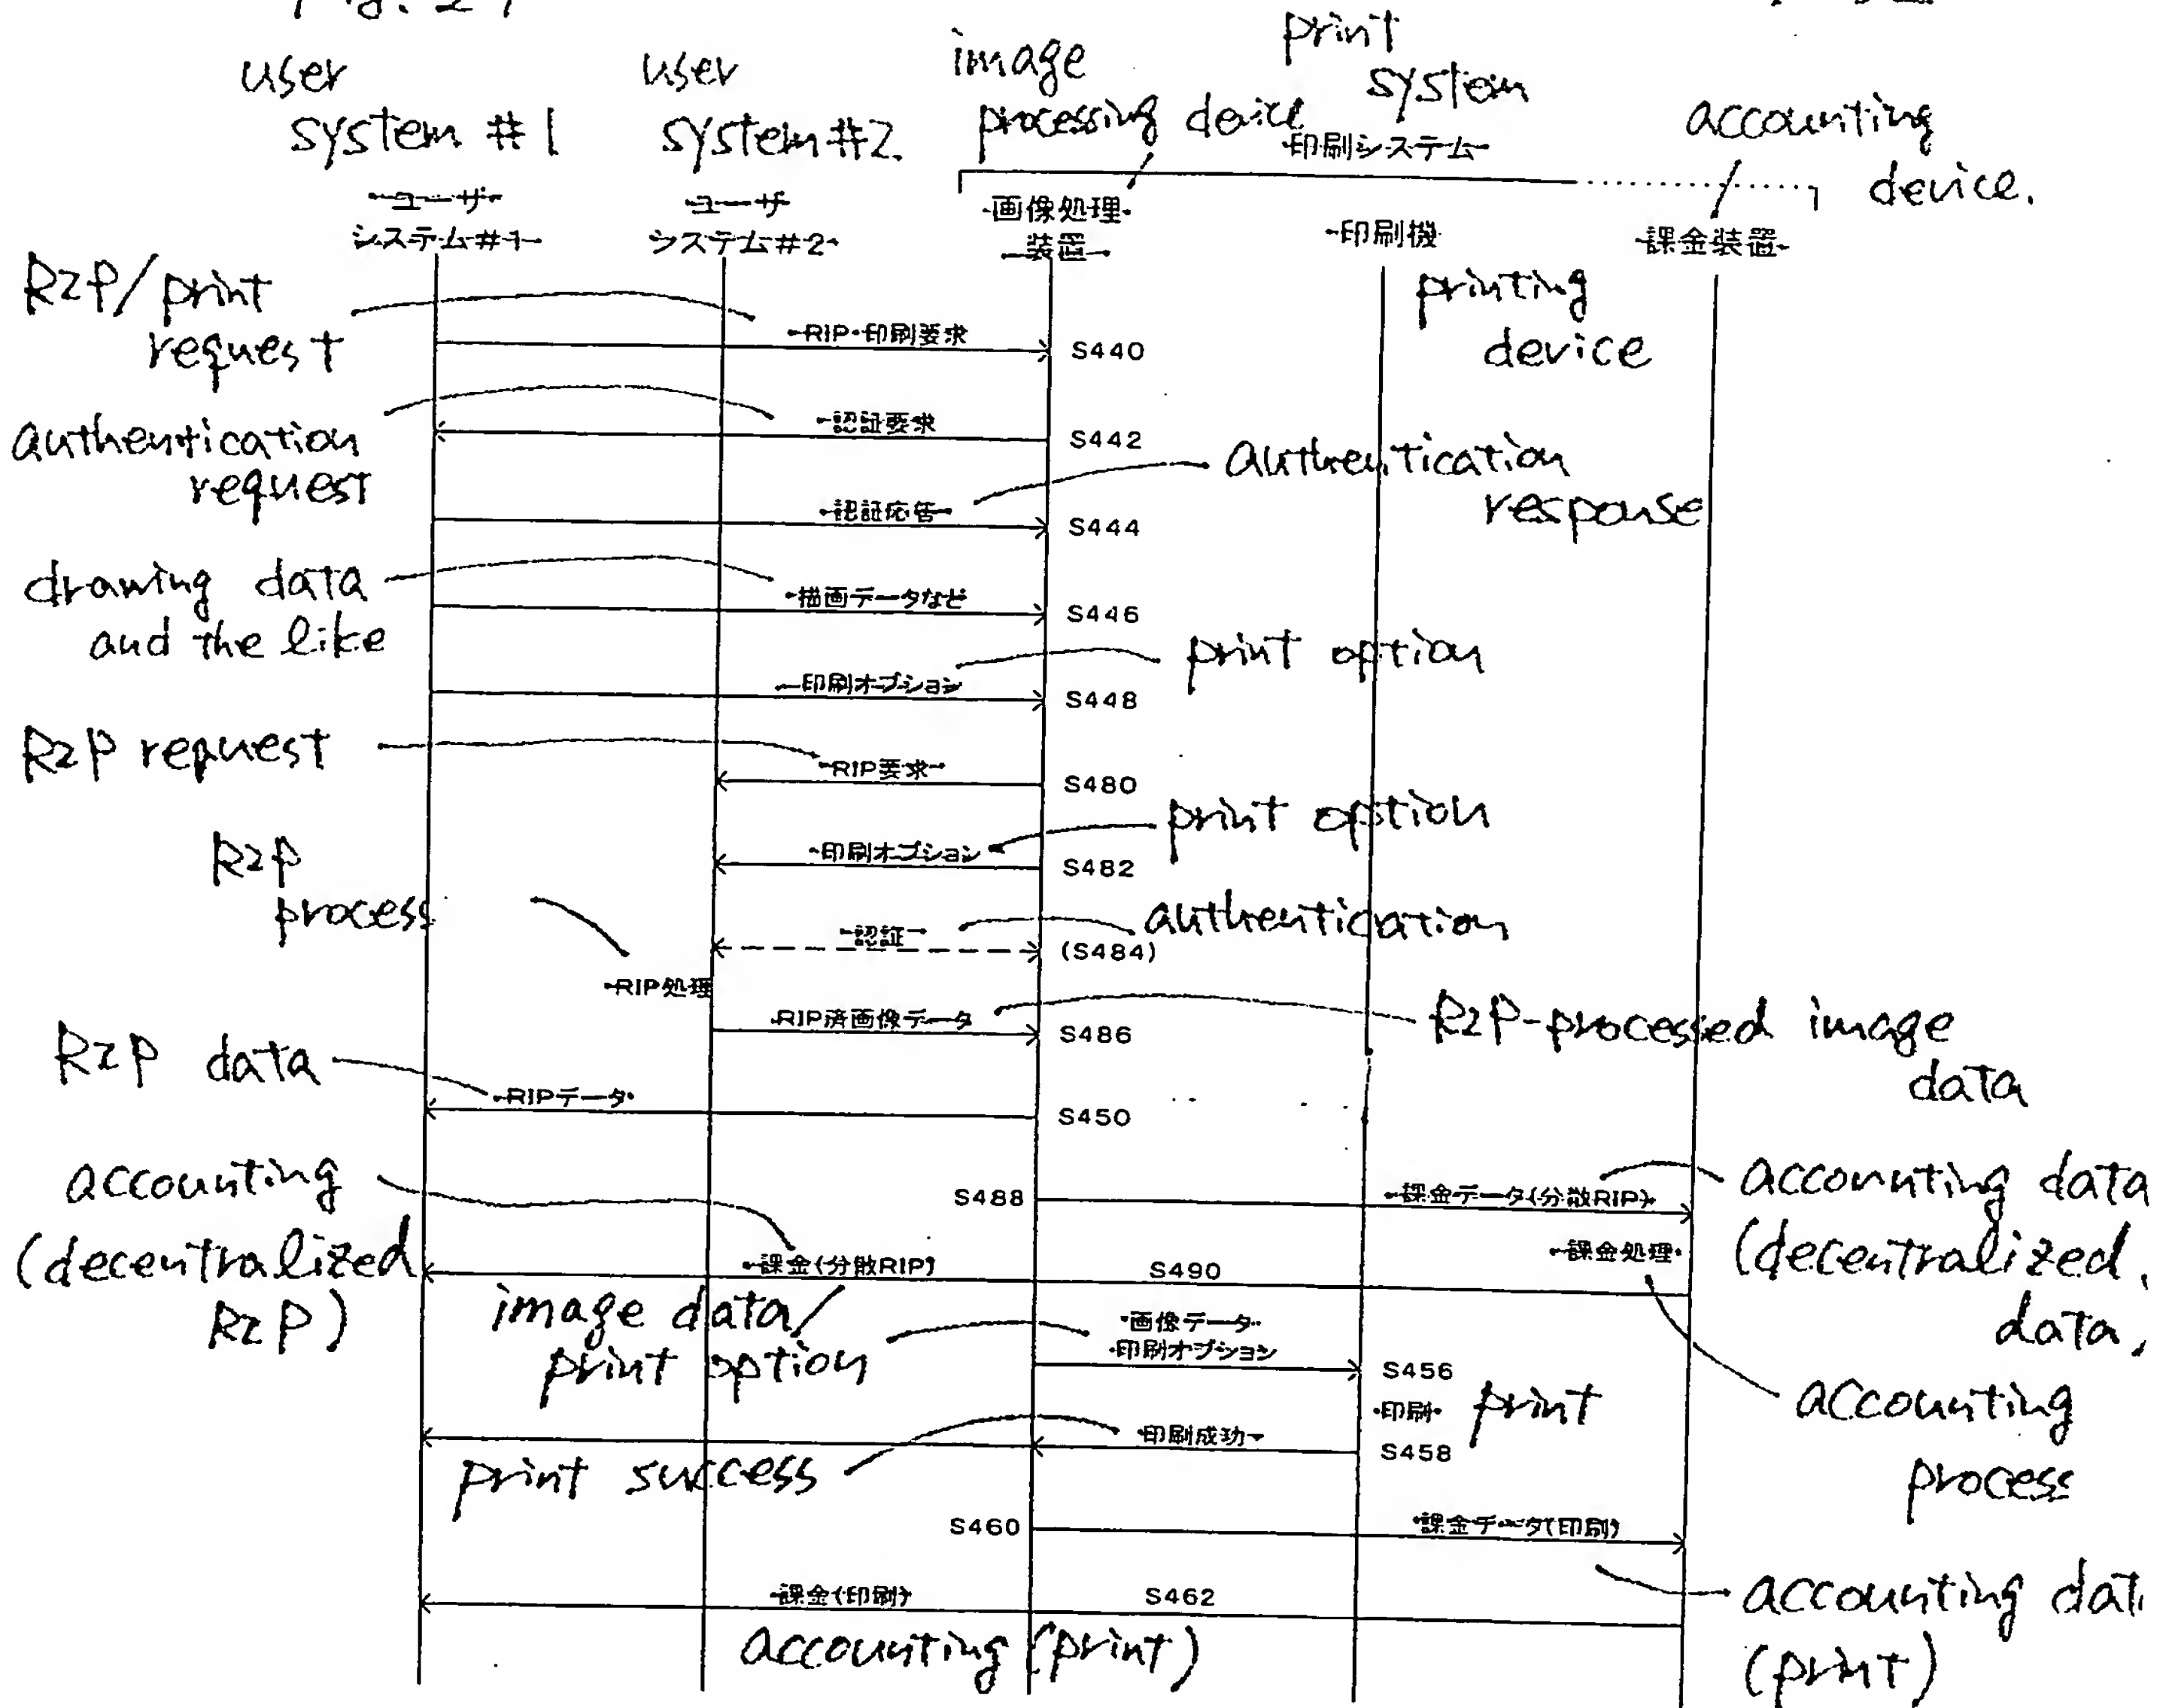 user
system #1
user
system #2.
image
processing device
print
system
accounting
device.
印刷システム
ユーザ
システム#1
ユーザ
システム#2
画像処理
装置
印刷機
課金装置
printing
device
RIP/print
request
RIP・印刷要求
S440
authentication
request
認証要求
S442
authentication
response
認証応答
S444
drawing data
and the like
描画データなど
S446
print option
印刷オプション
S448
RIP request
RIP要求
S480
print option
印刷オプション
S482
RIP
process
authentication
認証
(S484)
RIP処理
RIP済画像データ
S486
RIP-processed image
data
RIP data
RIPデータ
S450
accounting
(decentralized
RIP)
S488
課金データ(分散RIP)
accounting data
(decentralized
data,
課金処理
課金(分散RIP)
S490
image data/
print option
画像データ
印刷オプション
S456
印刷
print
accounting
process
印刷成功
S458
print success
S460
課金データ(印刷)
accounting dat
(print)
課金(印刷)
S462
accounting (print)